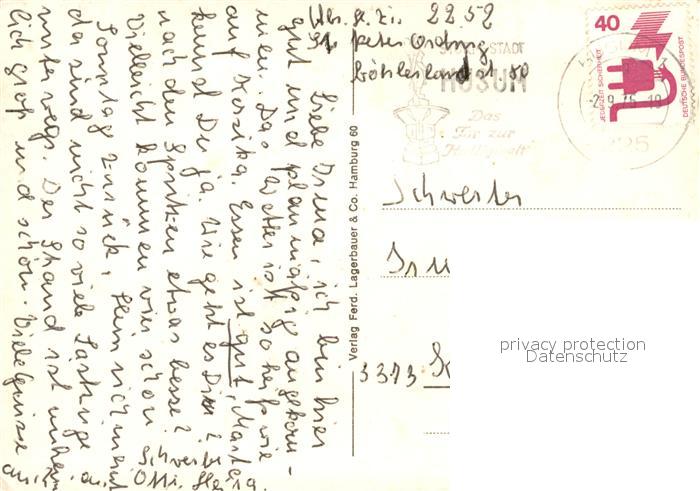 Abs. z. Zi. 2252
St. Peter Ording
Böhlerlandstr 80
Liebe Irma, ich bin hier
gut und planmäßig angekom-
men. Das Wetter ist so heiß wie
auf Korsika. Essen ist gut, Martera
kennst Du ja. Wie geht es Dir?
nach den Spritzen etwas besser?
Vielleicht kommen wir schon
Sonntag zurück,
da sind nicht so viele Lastzüge
unterwegs. Der Strand ist unheim-
lich groß und schön. Viele Grüsse
Schwester
Otti.
Verlag Ferd. Lagerbauer & Co. Hamburg 60
STADT
HUSUM
Das
Tor zur
Halligwelt
-2.9.75.18
225
40
JEDERZEIT SICHERHEIT
DEUTSCHE BUNDESPOST
Schwester
3313
privacy protection
Datenschutz